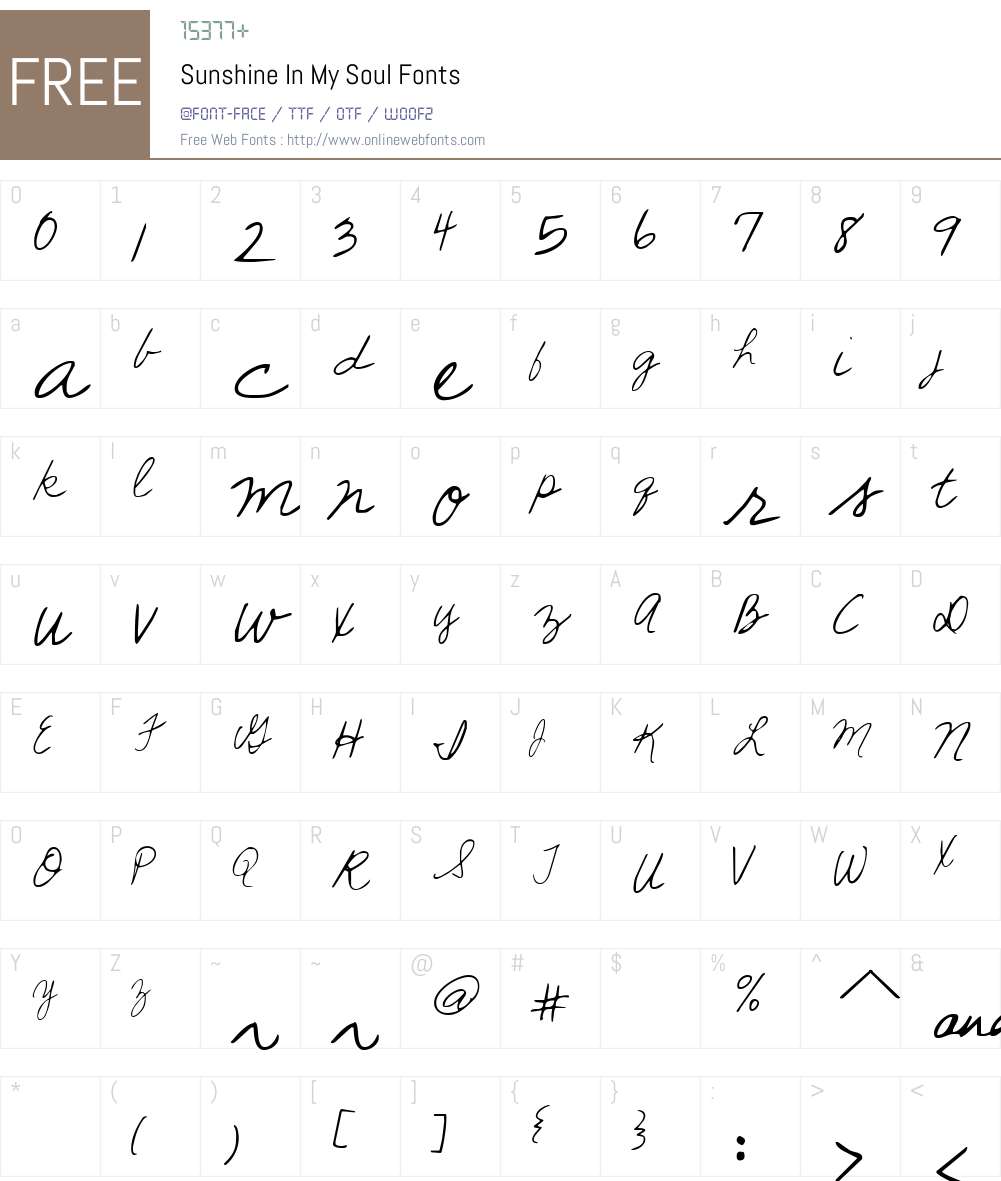 15377+
FREE
Sunshine In My Soul Fonts
@FONT-FACE / TTF / OTF / WOOF2
Free Web Fonts : http://www.onlinewebfonts.com
0 1 2 3 4 5 6 7 8 9
0 1 2 3 4 5 6 7 8 9
a b c d e f g h i j
a b c d e f g h i j
k l m n o p q r s t
k l m n o p q r s t
u v w x y z A B C D
u v w x y z A B C D
E F G H I J K L M N
E F G H I J K L M N
O P Q R S T U V W X
O P Q R S T U V W X
Y Z ~ ~ @ # $ % ^ &
y z ~ ~ @ # % ^ and
* ( ) [ ] { } : > <
( ) [ ] { } : > <